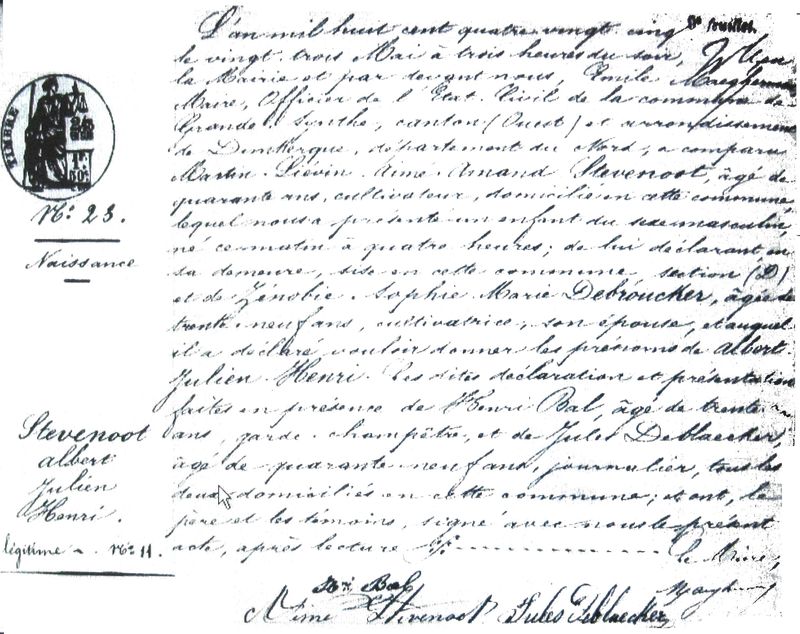 8e feuillet.
L'an mil huit cent quatre vingt cinq
le vingt trois Mai à trois heures du soir,
la Mairie et par devant nous, Emile
Maire, Officier de l'Etat Civil de la commune de
Grande-Synthe, canton (Ouest) et arrondissement
de Dunkerque, département du Nord, a comparu
Martin Liévin Aimé Amand Stevenoot, âgé de
quarante ans, cultivateur, domicilié en cette commune
lequel nous a présenté un enfant du sexe masculin,
né ce matin à quatre heures; de lui déclarant, en
sa demeure, sise en cette commune, section (D)
et de Zénobie Sophie Marie Debroucker, âgée de
trente-neuf ans, cultivatrice, son épouse, et auquel
il a déclaré vouloir donner les prénoms de Albert
Julien Henri. Les dites déclaration et présentation
faites en présence de Henri Bal, âgé de trente
ans, garde-champêtre, et de Jules Deblaecker,
âgé de quarante neuf ans, journalier, tous les
deux domiciliés en cette commune; et ont, le
père et les témoins, signé avec nous le présent
acte, après lecture
le Maire,
Hri Bal
Aimé Stevenoot Jules Deblaecker
TIMBRE
1F
50c
No. 23.
Naissance
Stevenoot
albert
Julien
Henri.
légitime - No. 11.